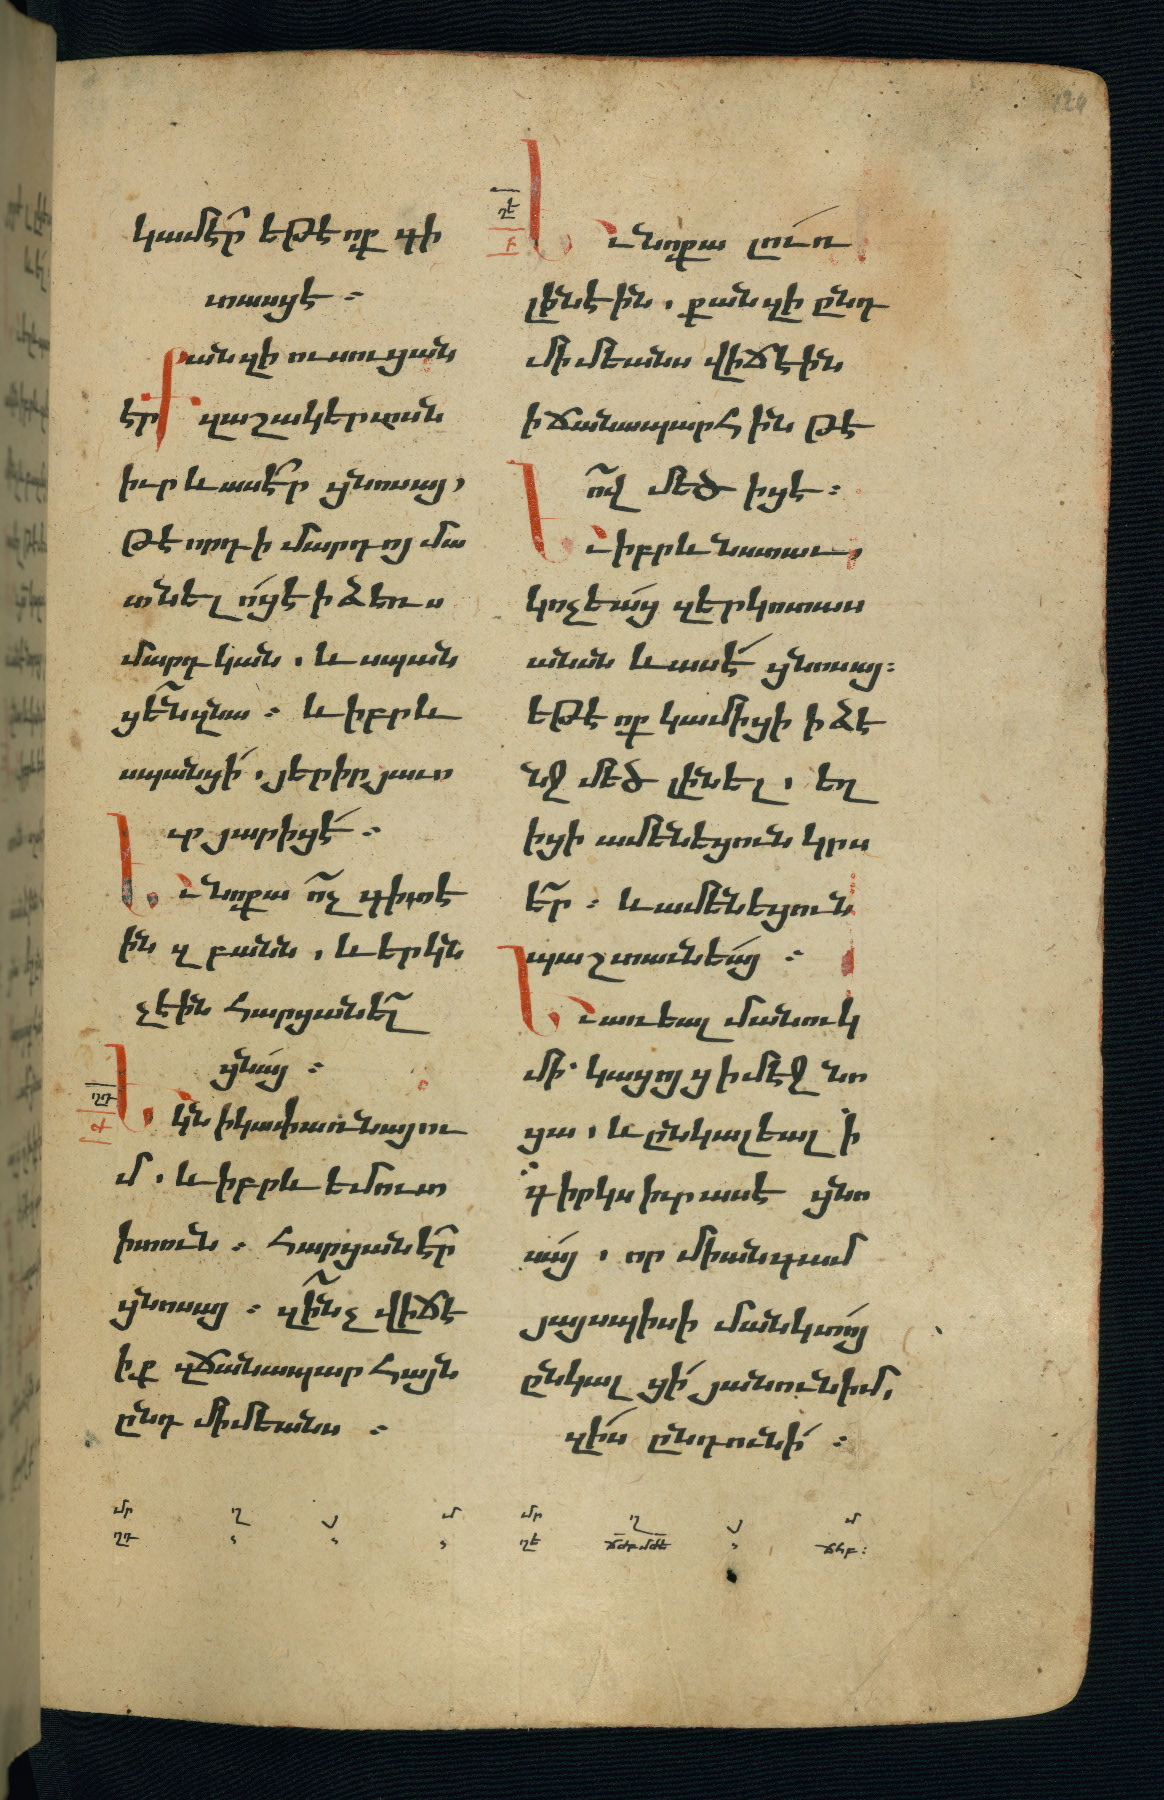 կամէր եթէ ոք գի
տասցէ ։
Քանզի ուսուցան
էր զաշակերտան
իւր և ասէր ցնոսայ,
թէ որդի մարդոյ մա
տնել ո՛ցէ ի ձեռս
մարդկան ․ և սպան
ցե՞նզնա ։ և իբրև
սպանցի՛ ․ յերիր յաւո
ւր յարիցէ՛ ։
Եւ նոքա ո՞չ գիտէ
ին զբանն ․ և երկն
չեին հարցանել
ցնա՛յ ։
ՂԴ
Դ
Եկն ի կափառնայու
մ ․ և իբրև եմուտ
ի տուն ։ հարցանէր
ցնոսայ ։ զի՞նչ վիճէ
իք զճանապարհայն
ընդ միմեանս ։
ՂԵ
Բ
Եւ նոքա լուռ
լինէին ․ քանզի ընդ
միմեանս վիճէին
ի ճանապարհին թէ
ո՞վ մեծ իցէ ։
Եւ իբրև նստաւ,
կոչեա՛ց զերկոտաս
անան և ասէ՛ ցնոսայ ։
եթէ ոք կամիցի ի ձէ
նջ մեծ լինել ․ եղ
իցի ամենեցուն կրս
եր ։ և ամենեցուն
պաշտաւնեա՛յ ։
Եւ առեալ մանուկ
մի ․ կացոյց ի մէջ նո
ցա ․ և ընկալեալ ի
գիրկս իւր ասէ ցնո
սա՛յ ․ որ միանգամ
յայսպիսի մանկտո՛յ
ընկալցի՛ յանուն իմ,
զիս ընդունի՛ ։
մր ղ մ
ղդ
մր ղ մ
ղե ճժբ մժե ճհբ ։